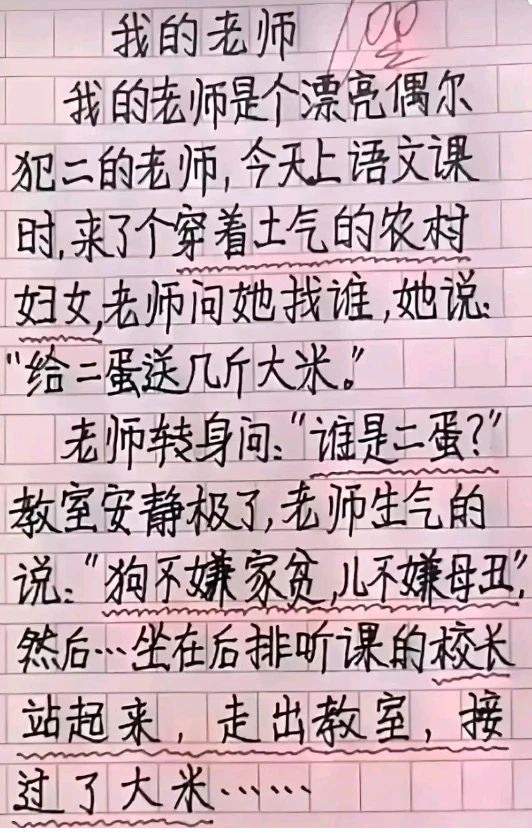 我的老师
我的老师是个漂亮偶尔
犯二的老师,今天上语文课
时,来了个穿着土气的农村
妇女,老师问她找谁,她说:
“给二蛋送几斤大米。”
老师转身问:“谁是二蛋?”
教室安静极了,老师生气的
说:“狗不嫌家贫,儿不嫌母丑”,
然后…坐在后排听课的校长
站起来,走出教室,接
过了大米……